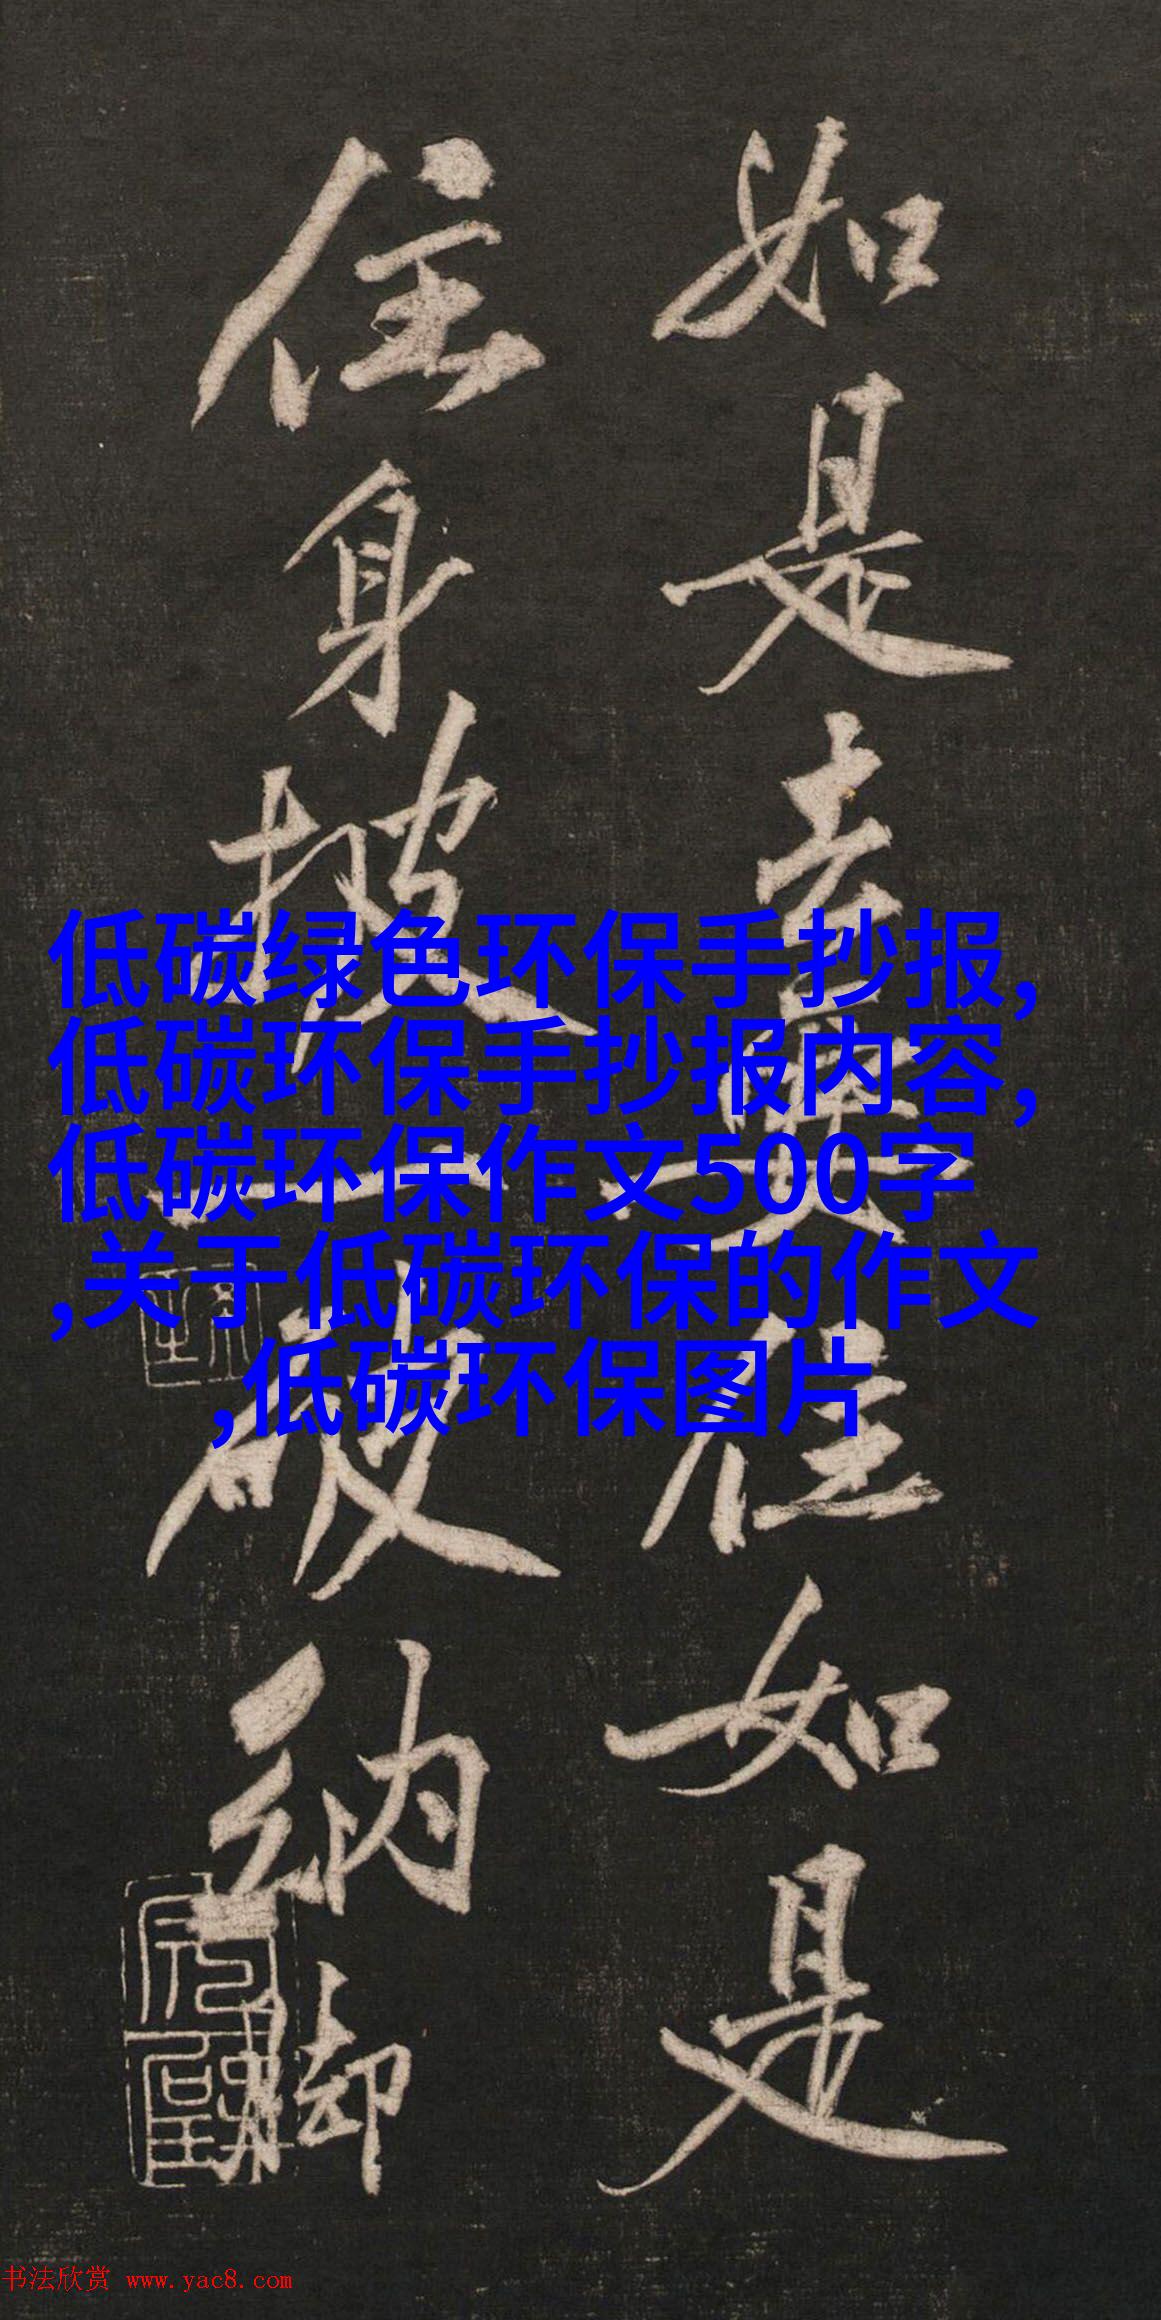 如是去住如是
住身披一破納脚
低碳绿色环保手抄报,
低碳环保手抄报内容,
低碳环保作文500字
,关于低碳环保的作文
,低碳环保图片
书法欣赏 www.yac8.com